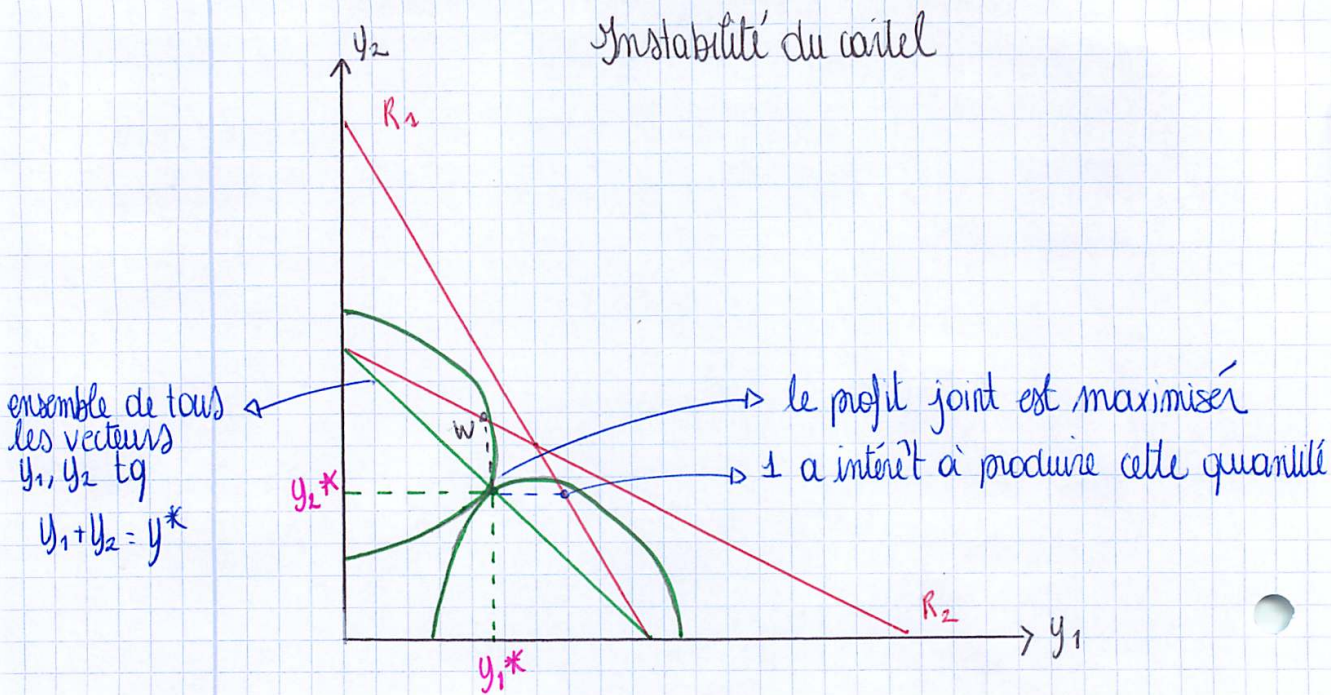 Instabilité du cartel
y₂
R₁
ensemble de tous
les vecteurs
y₁, y₂ tq
y₁ + y₂ = y*
w
le profit joint est maximisér
1 a intérêt à produire cette quantité
y₂*
R₂
y₁
y₁*